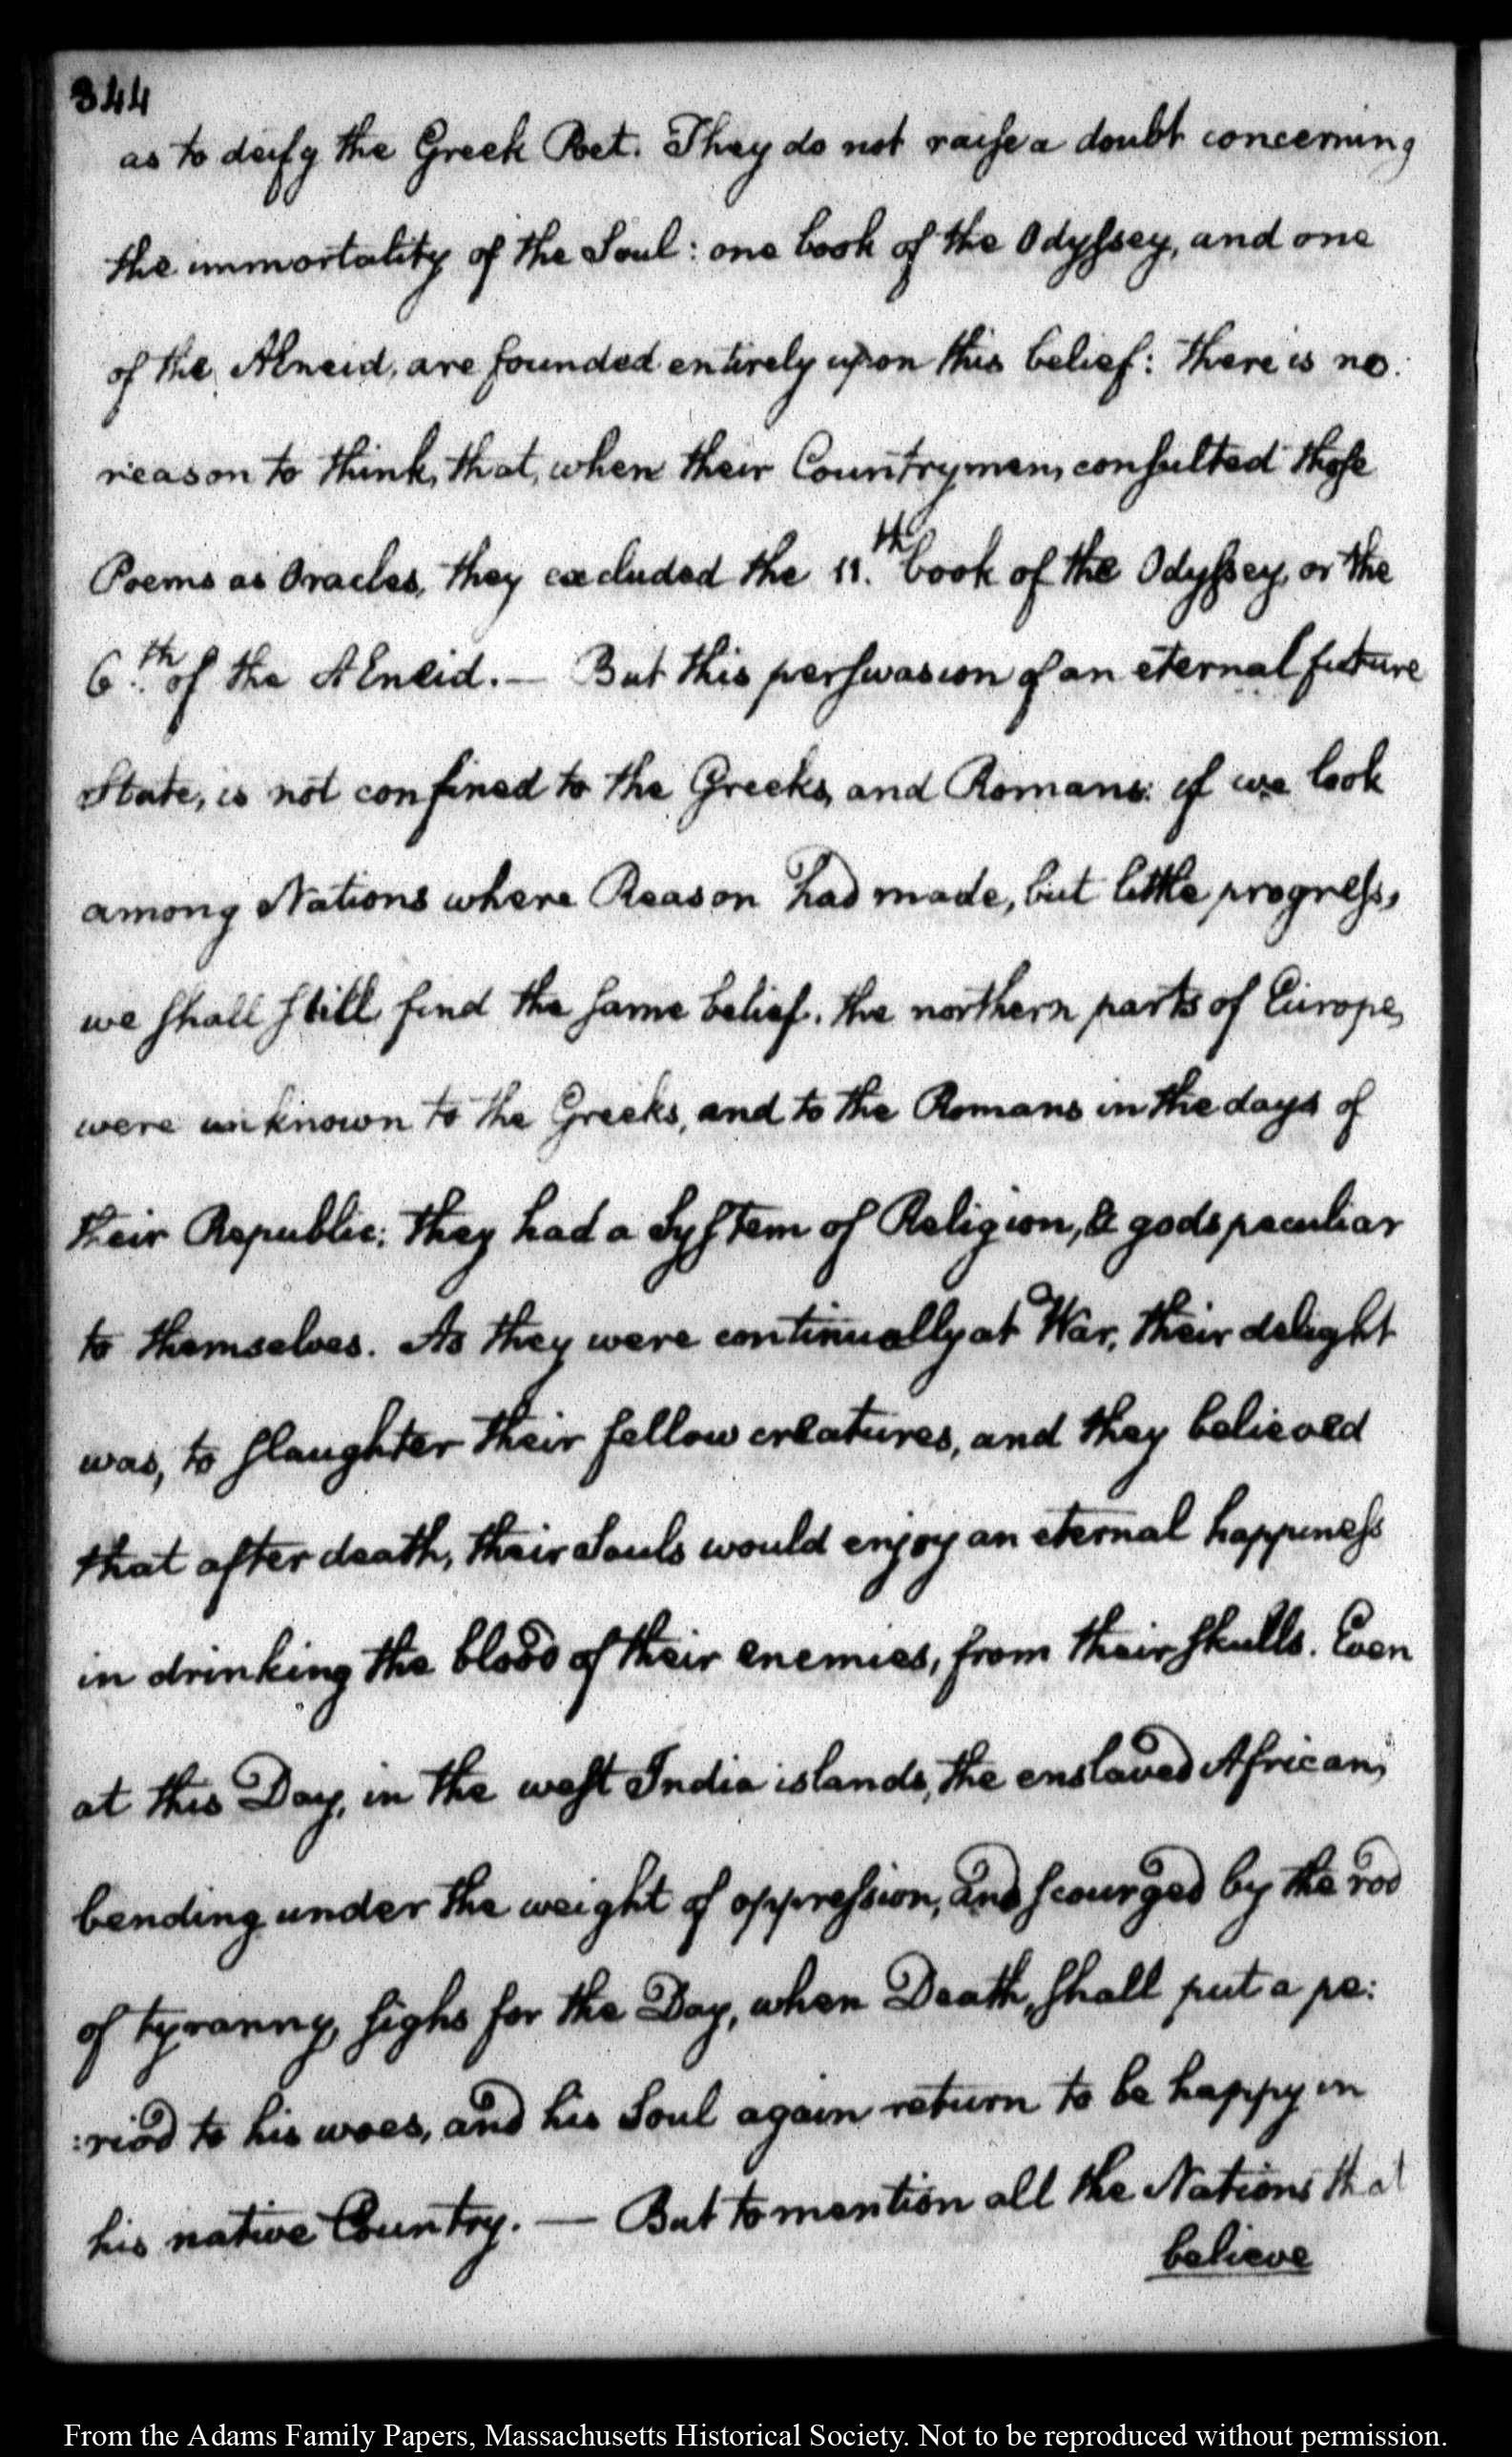 344
as to deify the Greek Poet. They do not raise a doubt concerning
the immortality of the Soul: one book of the Odyssey, and one
of the AEneid, are founded entirely upon this belief: there is no
reason to think, that, when their Countrymen, consulted those
Poems as Oracles, they excluded the 11.th book of the Odyssey, or the
6.th of the AEneid.— But this perswasion of an eternal future
State, is not confined to the Greeks, and Romans: if we look
among Nations where Reason had made, but little progress,
we shall still find the same belief. the northern parts of Europe,
were unknown to the Greeks, and to the Romans in the days of
their Republic; they had a System of Religion, & gods peculiar
to themselves. As they were continually at War, their delight
was, to slaughter their fellow creatures, and they believed
that after death, their Souls would enjoy an eternal happiness
in drinking the blood of their enemies, from their skulls. Even
at this Day, in the west India islands, the enslaved African,
bending under the weight of oppression, and scourged by the rod
of tyranny, sighs for the Day, when Death, shall put a pe:
:riod to his woes, and his Soul again return to be happy in
his native Country. — But to mention all the Nations that
believe
From the Adams Family Papers, Massachusetts Historical Society. Not to be reproduced without permission.